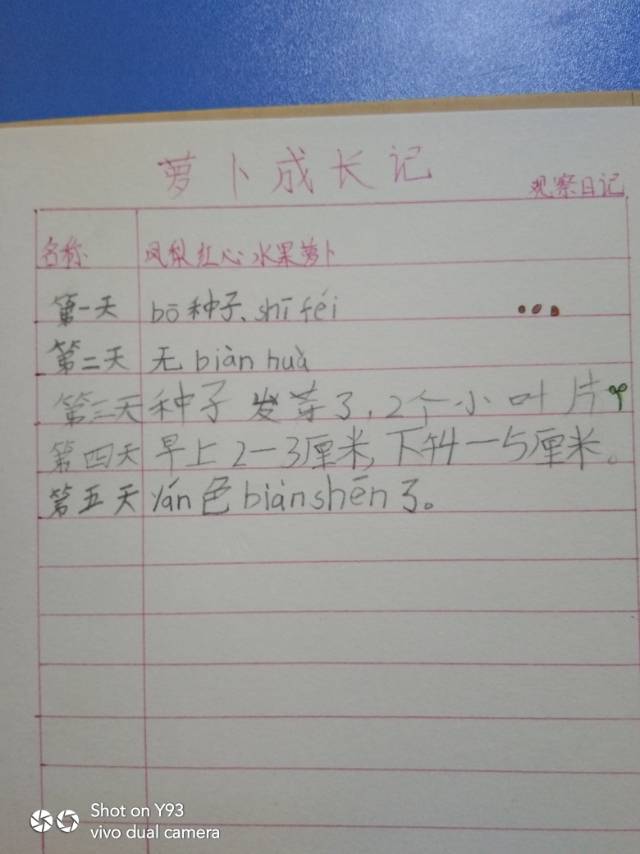 萝卜成长记
观察日记
名称 凤梨红心水果萝卜
第一天 bō种子、shī féi
第二天 无biàn huà
第三天 种子发芽了,2个小叶片
第四天 早上2—3厘米,下午4—5厘米。
第五天 yán色biànshēn了。
Shot on Y93
vivo dual camera